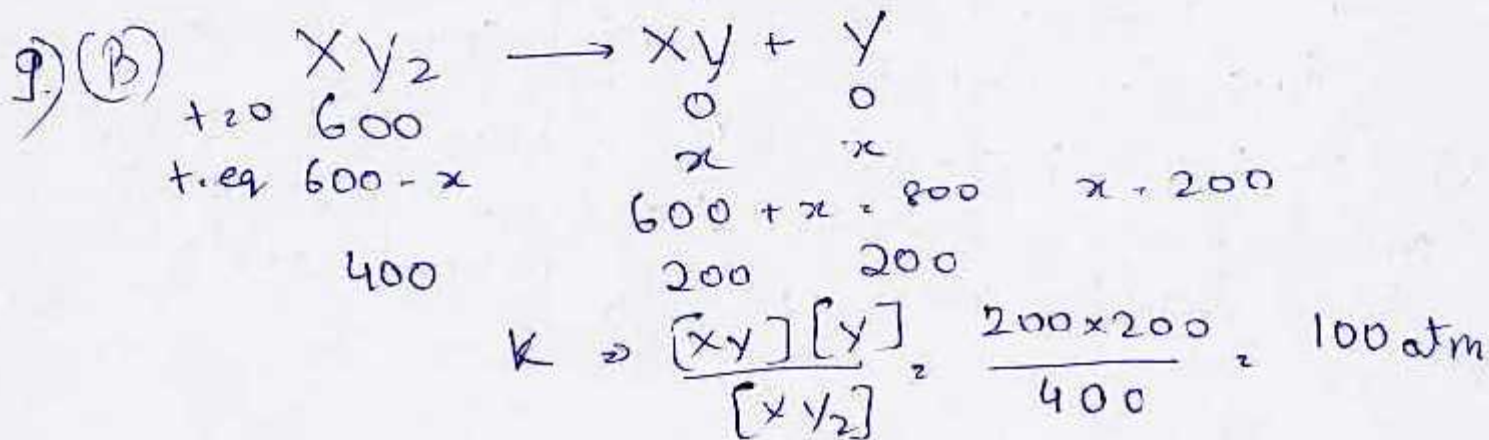 9) (B) XY2 → XY + Y
t=0 600 0 0
t.eq 600 - x x x
600 + x = 800 x = 200
400 200 200
K ⇒ [XY][Y] / [XY2] = 200×200 / 400 = 100 atm